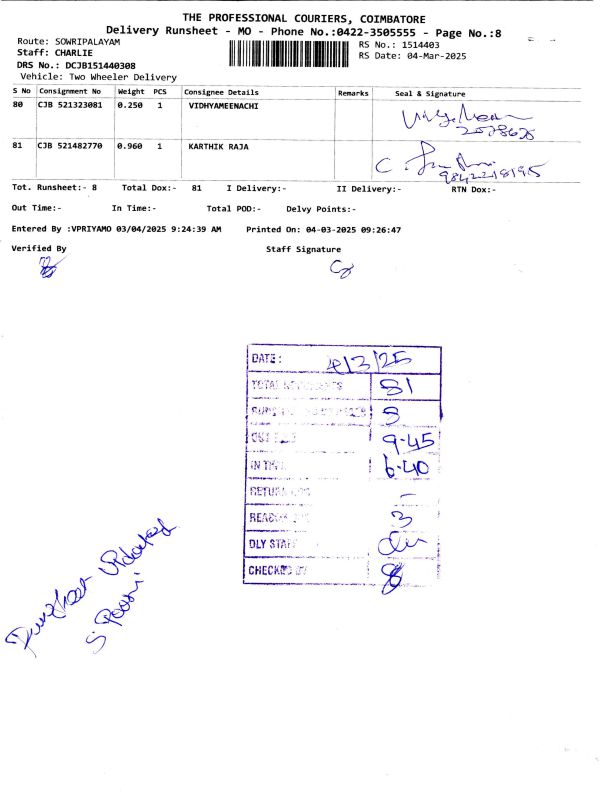 THE PROFESSIONAL COURIERS, COIMBATORE
Delivery Runsheet - MO - Phone No.:0422-3505555 - Page No.:8
Route: SOWRIPALAYAM
RS No.: 1514403
Staff: CHARLIE
RS Date: 04-Mar-2025
DRS No.: DCJB151440308
Vehicle: Two Wheeler Delivery
S No Consignment No Weight PCS Consignee Details Remarks Seal & Signature
80 CJB 521323081 0.250 1 VIDHYAMEENACHI
81 CJB 521482770 0.960 1 KARTHIK RAJA
Tot. Runsheet:- 8 Total Dox:- 81 I Delivery:- II Delivery:- RTN Dox:-
Out Time:- In Time:- Total POD:- Delvy Points:-
Entered By :VPRIYAMO 03/04/2025 9:24:39 AM Printed On: 04-03-2025 09:26:47
Verified By Staff Signature
DATE: 4/3/25
TOTAL 81
8
OUT TIME 9.45
IN TIME 6.40
RETURN -
3
DLY STAFF
CHECKED BY
Runsheet Updated